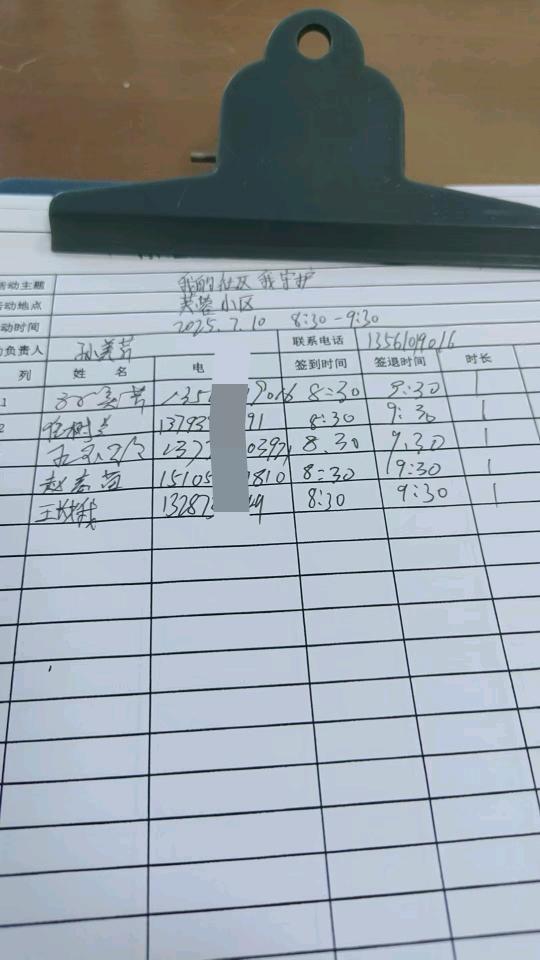 活动主题 我的社区 我守护
活动地点 芙蓉小区
动时间 2025.7.10 8:30-9:30
负责人 孙美芳 联系电话 13561019016
列 姓 名 电 签到时间 签退时间 时长
1 135 9016 8:30 9:30 1
2 13793 91 8:30 9:30 1
1377 0397 8:30 9:30 1
赵 15105 1810 8:30 9:30 1
王 13287 49 8:30 9:30 1